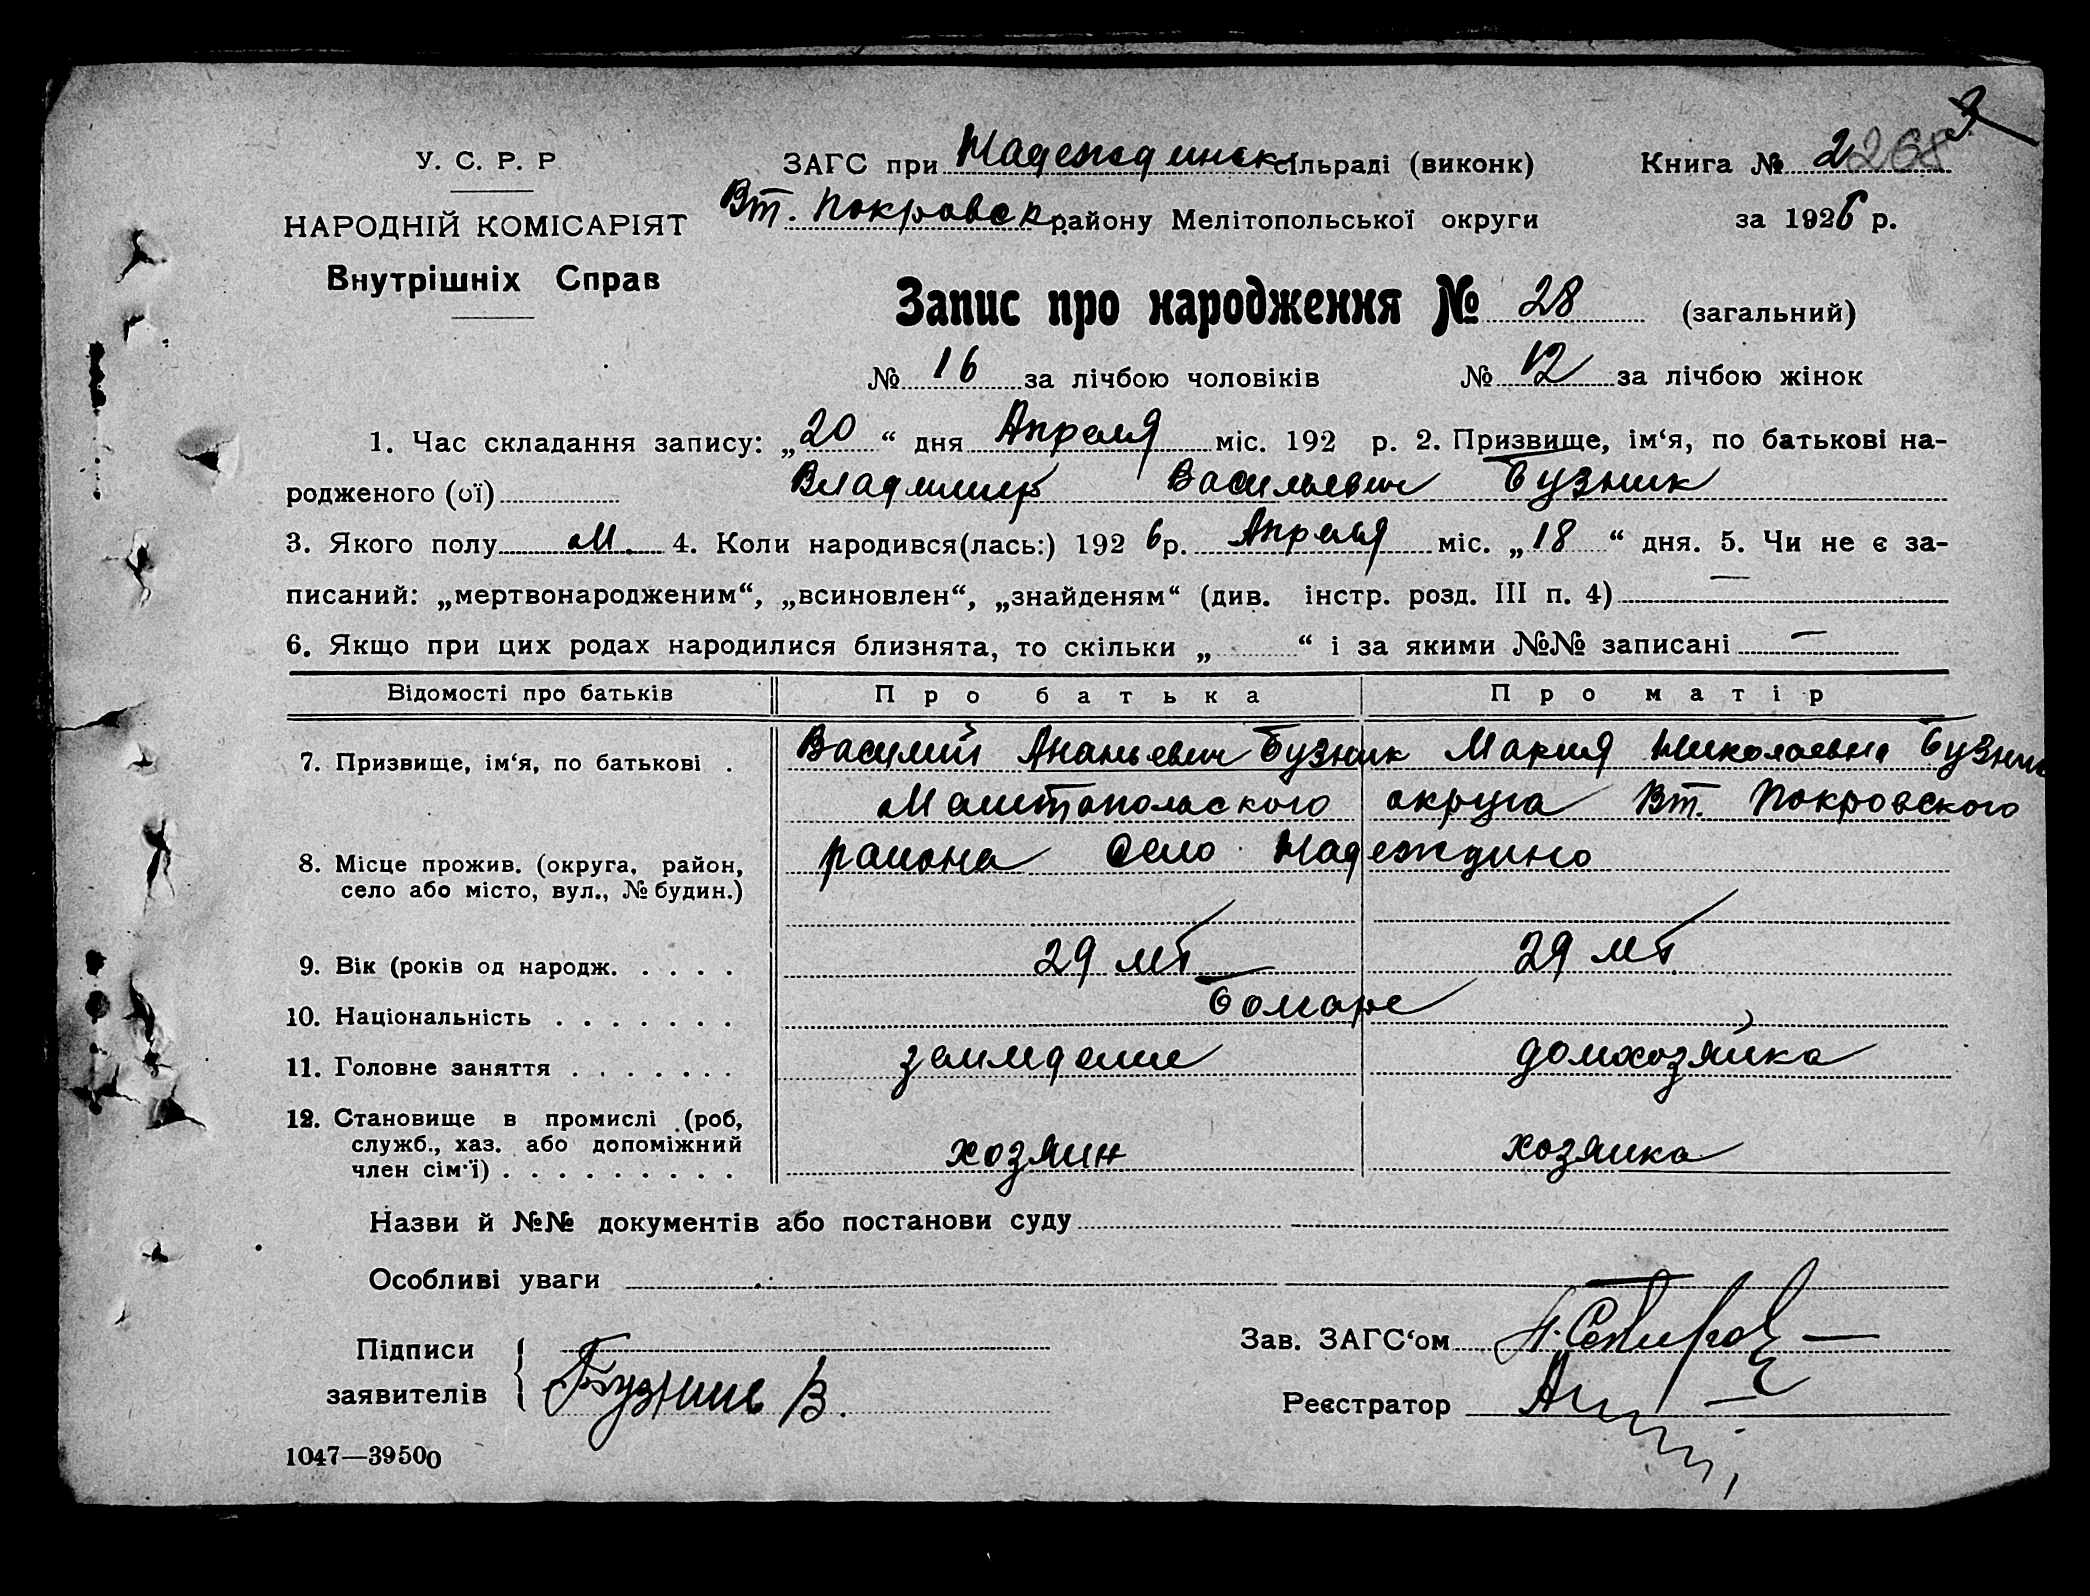 У. С. Р. Р.
НАРОДНІЙ КОМІСАРІЯТ
Внутрішніх Справ
ЗАГС при Надеждинск. сільраді (виконк)
Вт. Покровск. району Мелітопольської округи
Книга № 2 268
за 1926 р.
Запис про народження № 28 (загальний)
№ 16 за лічбою чоловіків № 12 за лічбою жінок
1. Час складання запису: „20“ дня Апреля міс. 192 р. 2. Призвище, ім‘я, по батькові на-
родженого (ої) Владимир Васильевич Бузник
3. Якого полу м. 4. Коли народився(лась:) 1926 р. Апреля міс. „18“ дня. 5. Чи не є за-
писаний: „мертвонародженим“, „всиновлен“, „знайденям“ (див. інстр. розд. III п. 4) —
6. Якщо при цих родах народилися близнята, то скільки „ “ і за якими №№ записані —
Відомості про батьків Про батька Про матір
7. Призвище, ім‘я, по батькові . Василий Ананьевич Бузник Мария Николаевна Бузник
Мелитопольского округа Вт. Покровского
8. Місце прожив. (округа, район, района село Надеждино
село або місто, вул., № будин.)
9. Вік (років од народж. . . . . 29 лет 29 лет
10. Національність . . . . . . . Болгаре
11. Головне заняття . . . . . . . земледелие домохозяйка
12. Становище в промислі (роб,
служб., хаз. або допоміжний хозяин хозяика
член сім‘ї) . . . . . . . . .
Назви й №№ документів або постанови суду
Особливі уваги
Підписи
заявителів Бузник В.
Зав. ЗАГС‘ом
Реєстратор
1047—39500